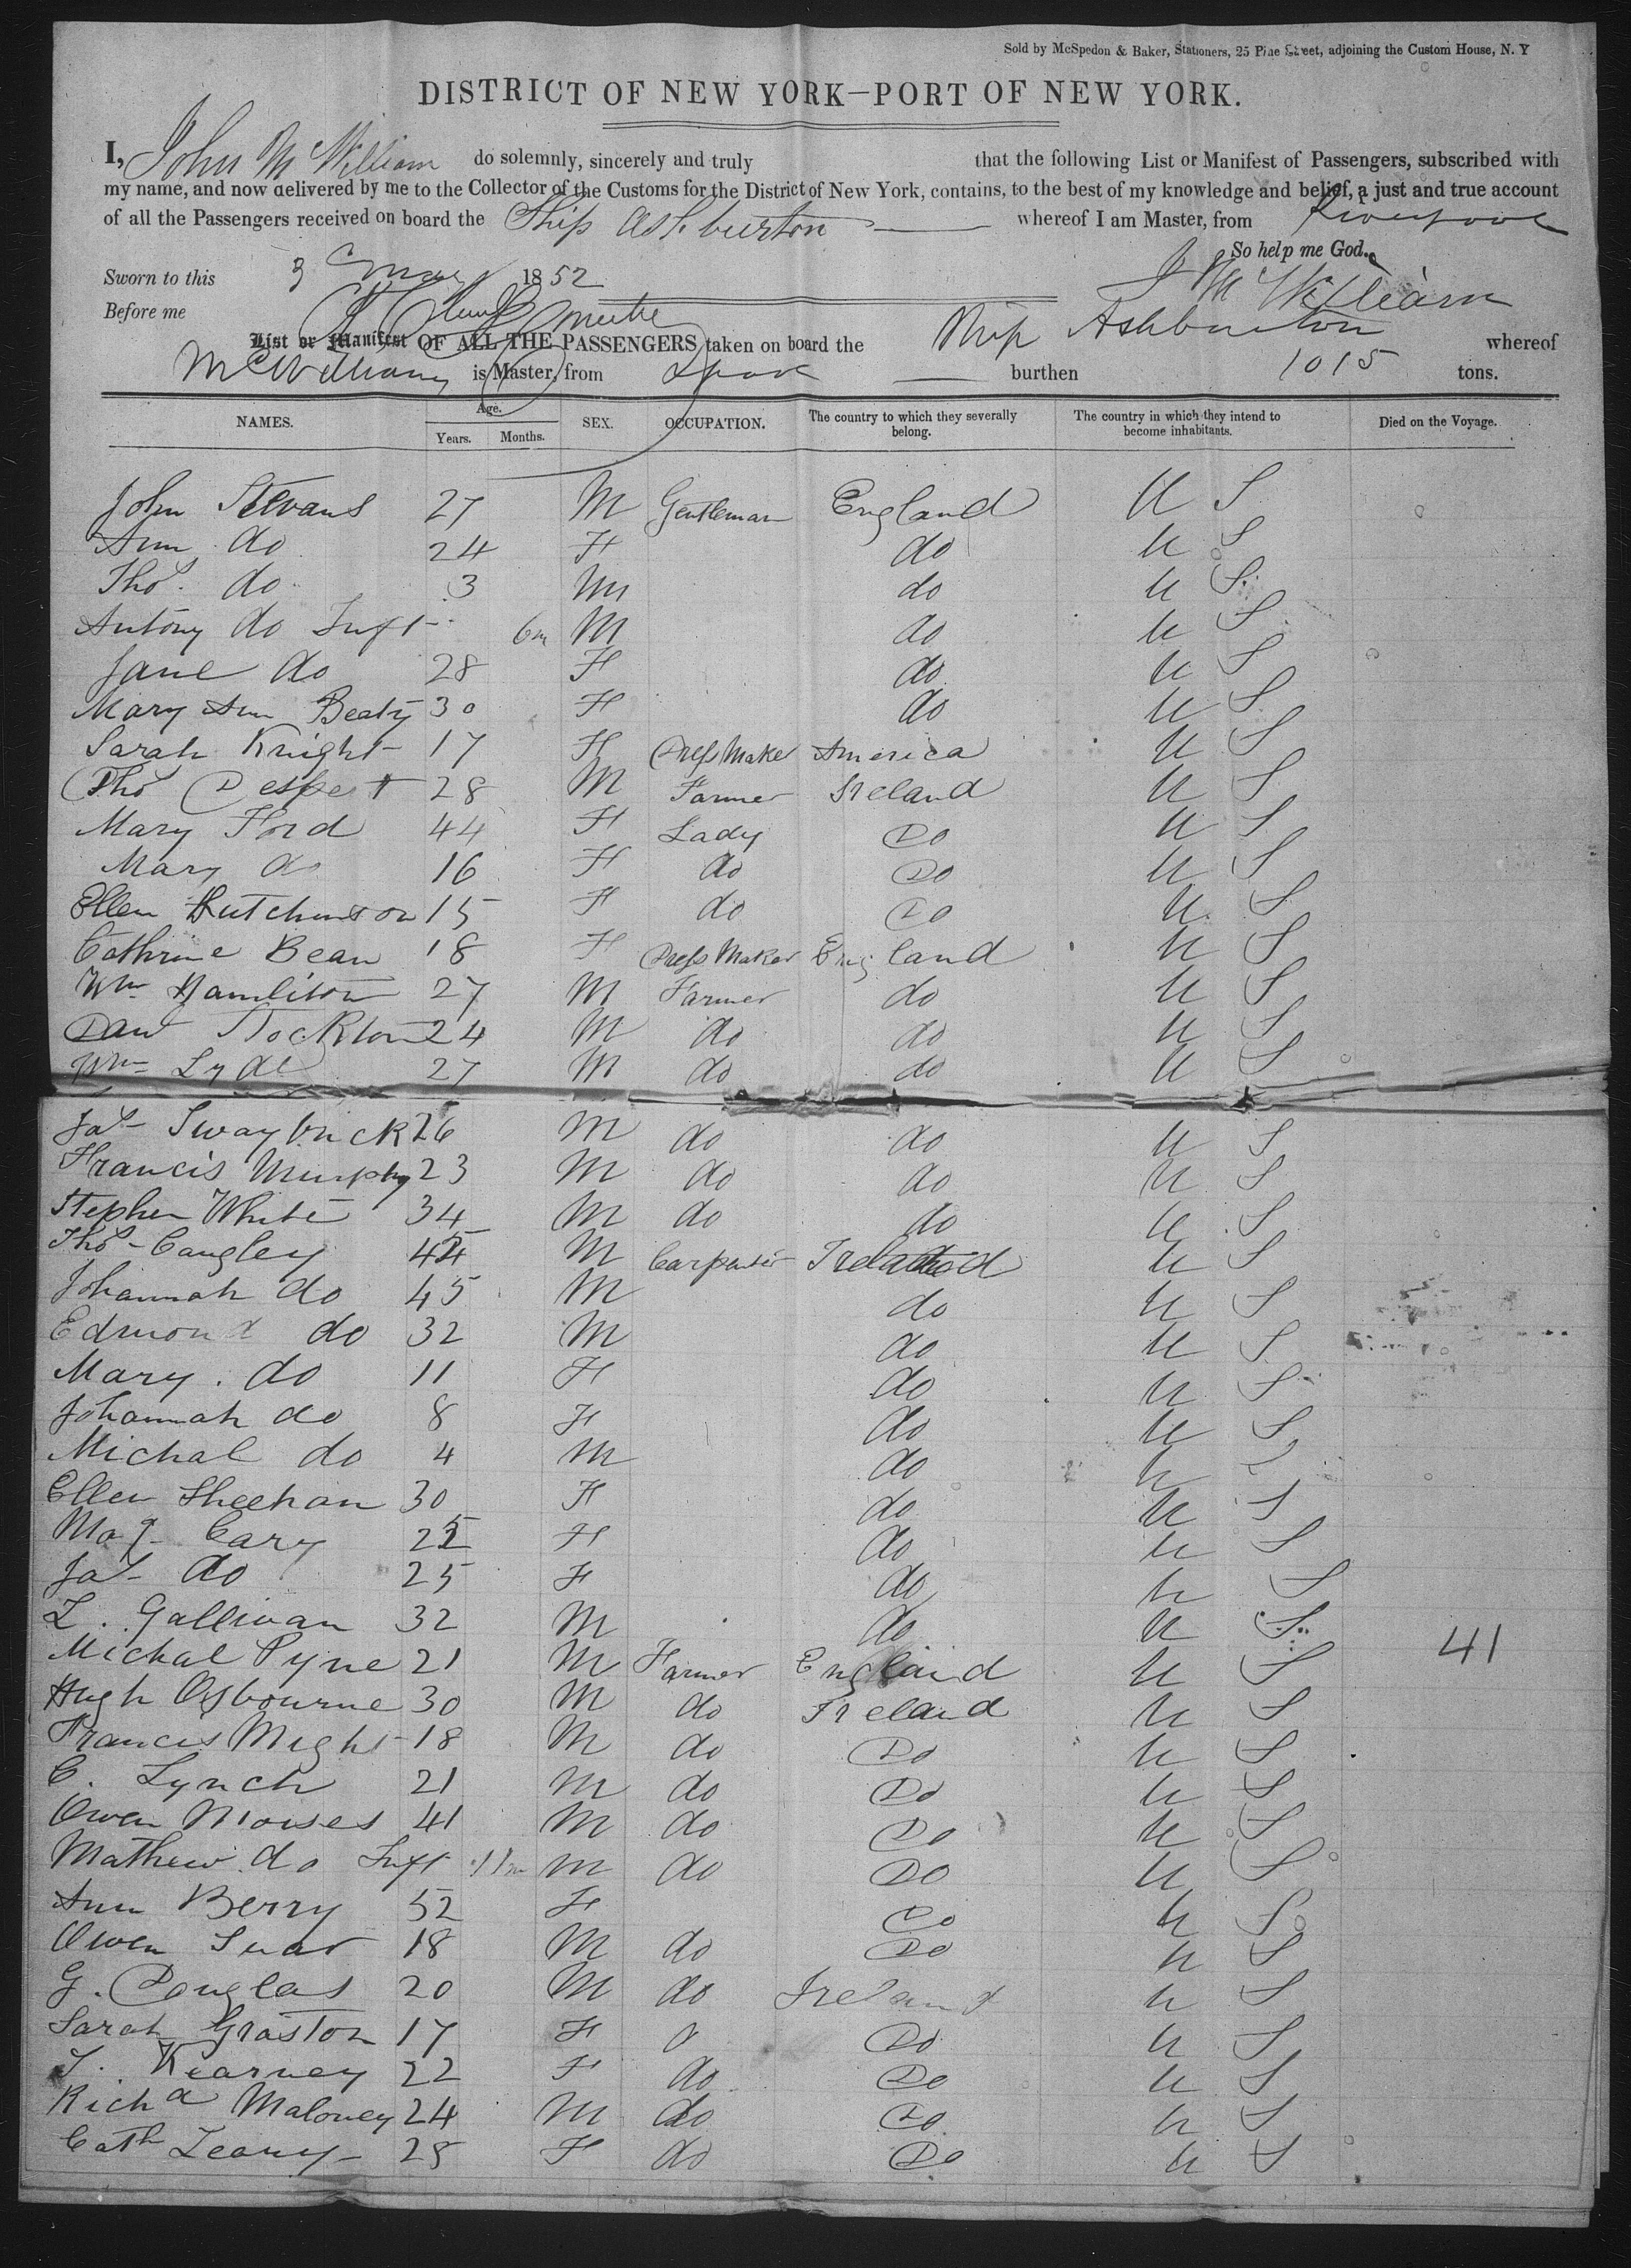 Sold by McSpedon & Baker, Stationers, 25 Pine Street, adjoining the Custom House, N. Y
DISTRICT OF NEW YORK—PORT OF NEW YORK.
I, John McWilliam do solemnly, sincerely and truly that the following List or Manifest of Passengers, subscribed with
my name, and now delivered by me to the Collector of the Customs for the District of New York, contains, to the best of my knowledge and belief, a just and true account
of all the Passengers received on board the Ship Ashburton whereof I am Master, from Liverpool
So help me God.
Sworn to this 3 May 1852 J McWilliam
Before me
List or Manifest OF ALL THE PASSENGERS taken on board the Ship Ashburton whereof
McWilliam is Master, from Lpool burthen 1015 tons.
NAMES. Age. Years. Months. SEX. OCCUPATION. The country to which they severally belong. The country in which they intend to become inhabitants. Died on the Voyage.
John Stevans 27 M Gentleman England U S
Ann do 24 F do U S
Thos. do 3 M do U S
Antony do Inft 6m M do U S
Jane do 28 F do U S
Mary Ann Beaty 30 F do U S
Sarah Knight 17 F Dress Maker America U S
Thos Despert 28 M Farmer Ireland U S
Mary Ford 44 F Lady Do U S
Mary do 16 F do Do U S
Ellen Hutchinson 15 F do Do U S
Cathrine Bean 18 F Dress Maker England U S
Wm Hamliton 27 M Farmer do U S
Dan Stockton 24 M do do U S
Wm Lyde 27 M do do U S
Jas Swaybrick 26 M do do U S
Francis Murphy 23 M do do U S
Stephen White 34 M do do U S
Thos Cangley M Carpenter Ireland U S
Johannah do 45 M do U S
Edmond do 32 M do U S
Mary. do 11 F do U S
Johannah do 8 F do U S
Michal do 4 M do U S
Ellen Sheehan 30 F do U S
Cary F do U S
Jas do 25 F do U S
Gallivan 32 M do U S
Michal Pyne 21 M Farmer England U S 41
Hugh Osbourne 30 M do Ireland U S
Francis Might 18 M do Do U S
C. Lynch 21 M do Do U S
Owen Moises 41 M do Do U S
Mathew do Inft 11m M do Do U S
Ann Berry 52 F Do U S
Owen 18 M do Do U S
G. Douglas 20 M do Ireland U S
Sarah Graston 17 F Do U S
Kearney 22 F do Do U S
Richd Maloney 24 M do Do U S
Cath Leary 28 F do Do U S